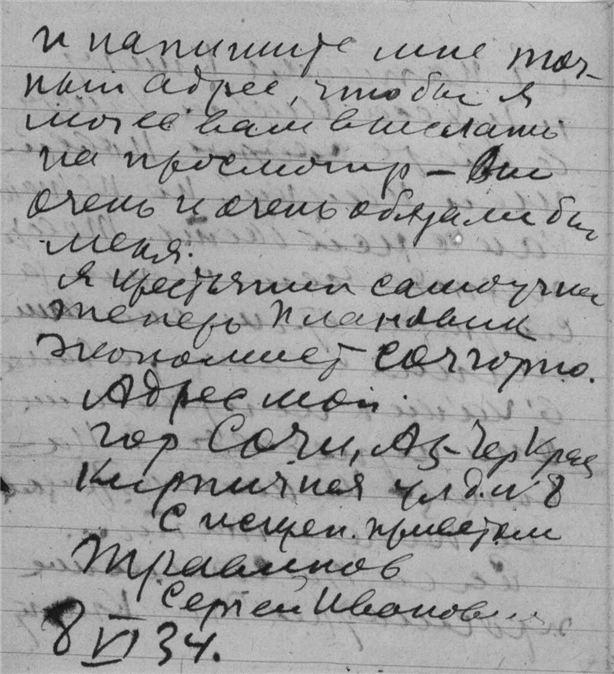 и напишите мне точ-
ный адрес, чтобы я
мог ее вам выслать
на просмотр – Вы
очень и очень обязали бы
меня.
Я крестьянин самоучка
теперь плановик
экономист Сочгорпо.
Адрес мой
гор Сочи, Аз-Чер Края
Кирпичная ул д. № 8
С искрен. приветом
Травинов
Сергей Иванов
8 VI 34.